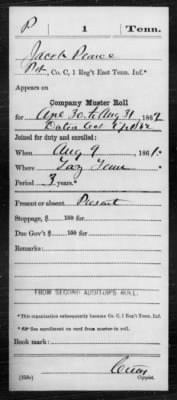 P | 1 | Tenn.
Jacob Pearce
Pvt, Co. C, 1 Reg't East Tenn. Inf.*
Appears on
Company Muster Roll
for Apl 30 to Aug 31, 1862
Joined for duty and enrolled:
When Aug 9, 1861.
Where Taz Tenn
Period 3 years.*
Present or absent Present
Stoppage, $ 100 for
Due Gov't $ 100 for
Remarks:
FROM SECOND AUDITOR'S ROLL.
*This organization subsequently became Co. C, 1 Reg't Tenn. Inf.
*See enrollment on card from muster-in roll.
Book mark:
(358c) Copyist.